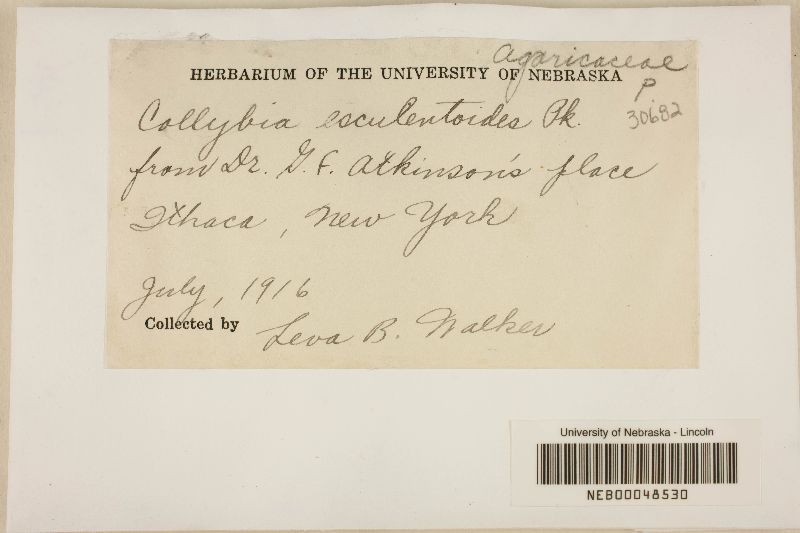 Agaricaceae
HERBARIUM OF THE UNIVERSITY OF NEBRASKA
P
30682
Collybia esculentoides Pk.
from Dr. G. F. Atkinson's place
Ithaca, New York
July, 1916
Collected by Leva B. Walker
University of Nebraska - Lincoln
NEB00048530